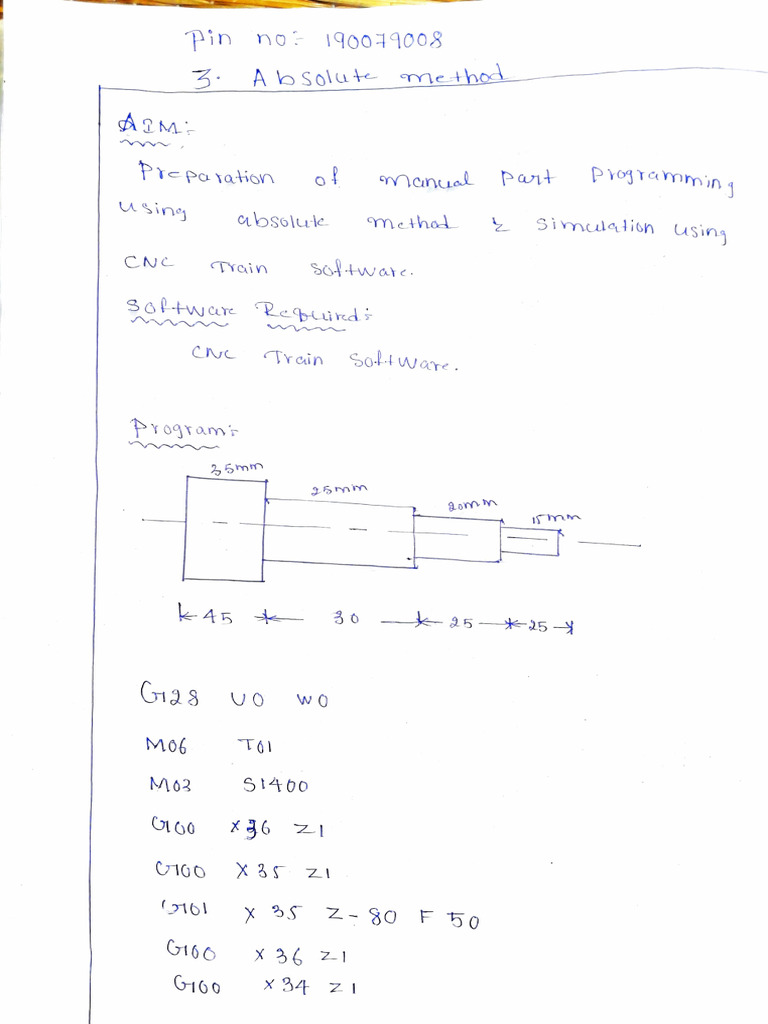 Pin no:- 190079008
3. Absolute method
AIM:-
Preparation of manual part programming
using absolute method & simulation using
CNC Train software.
Software Required:-
CNC Train Software.
Program:-
35mm
25mm
20mm
15mm
45 30 25 25
G28 U0 W0
M06 T01
M03 S1400
G00 X36 Z1
G00 X35 Z1
G01 X35 Z-80 F50
G00 X36 Z1
G00 X34 Z1